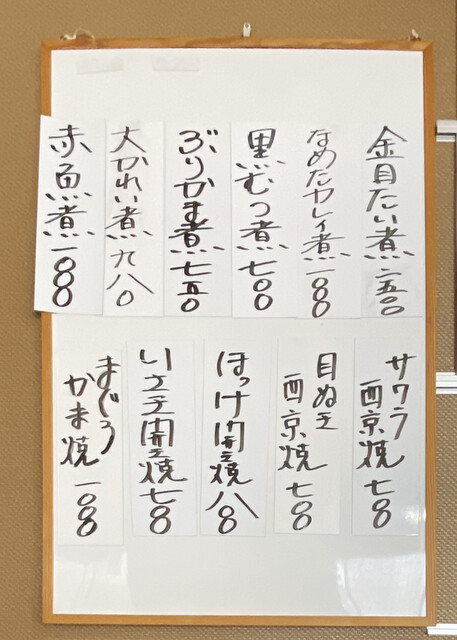 金目たい煮 一五〇〇
なめたカレイ煮 一〇〇〇
黒むつ煮 七〇〇
ぶりかま煮 七五〇
大かれい煮 九八〇
赤魚煮 一〇〇〇
サワラ
西京焼 七〇〇
目ぬき
西京焼 七〇〇
ほっけ開き焼 八〇〇
いさき開き焼 七〇〇
まぐろ
かま焼 一〇〇〇